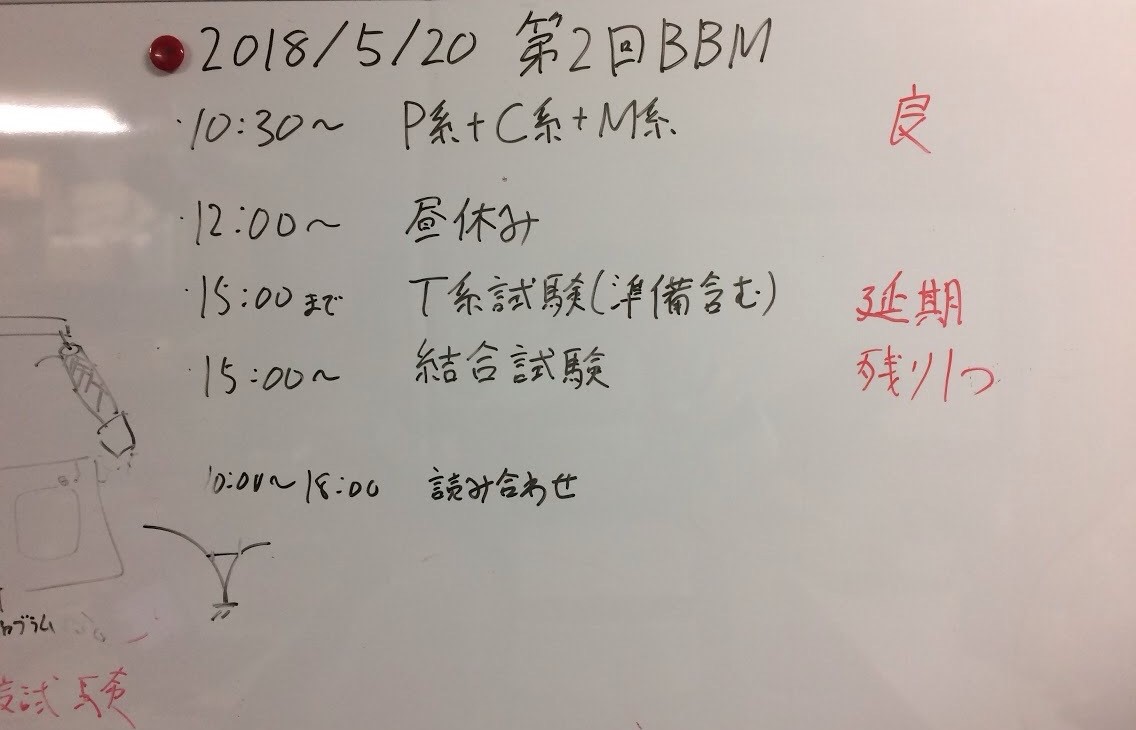 2018/5/20 第2回BBM
・10:30〜 P系+C系+M系 良
・12:00〜 昼休み
・15:00まで T系試験(準備含む) 延期
・15:00〜 結合試験 残り1つ
10:00〜18:00 読み合わせ
試験